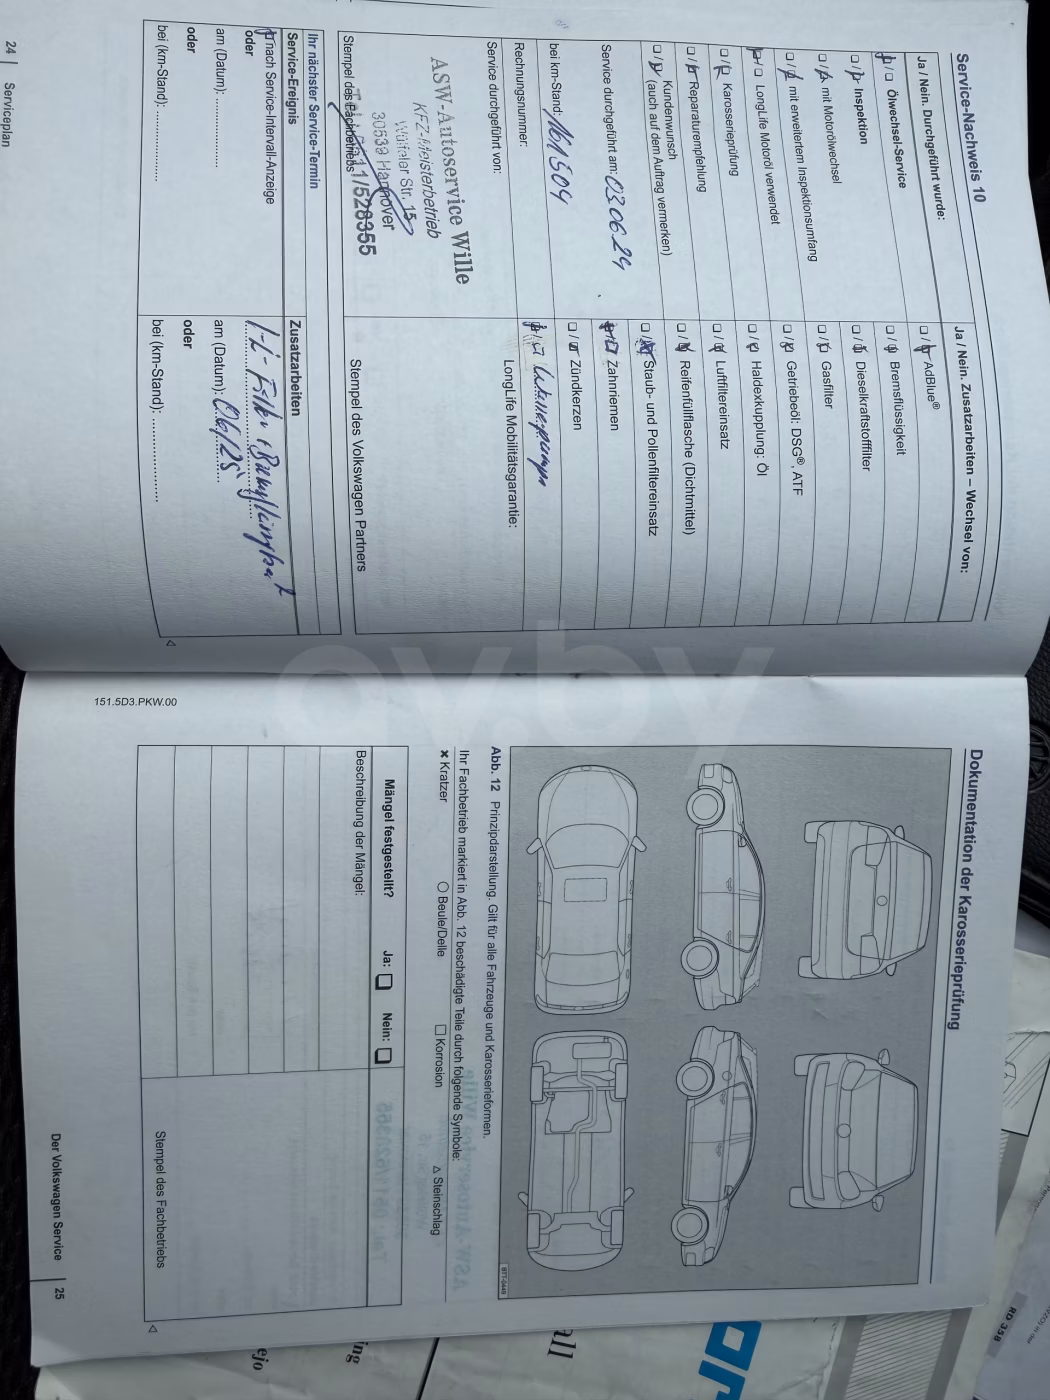 Service-Nachweis 10
Ja / Nein. Durchgeführt wurde:
Ölwechsel-Service
Inspektion
mit Motorölwechsel
mit erweitertem Inspektionsumfang
LongLife Motoröl verwendet
Karosserieprüfung
Reparaturempfehlung
Kundenwunsch
(auch auf dem Auftrag vermerken)
Service durchgeführt am: 03.06.24
bei km-Stand: 161504
Rechnungsnummer:
Service durchgeführt von:
ASW-Autoservice Wille
KFZ-Meisterbetrieb
Wülfeler Str. 15
30539 Hannover
1/528355
Stempel des Fachbetriebs
Ja / Nein. Zusatzarbeiten – Wechsel von:
AdBlue®
Bremsflüssigkeit
Dieselkraftstofffilter
Gasfilter
Getriebeöl: DSG®, ATF
Haldexkupplung: Öl
Luftfiltereinsatz
Reifenfüllflasche (Dichtmittel)
Staub- und Pollenfiltereinsatz
Zahnriemen
Zündkerzen
LongLife Mobilitätsgarantie:
Stempel des Volkswagen Partners
Ihr nächster Service-Termin
Service-Ereignis
nach Service-Intervall-Anzeige
oder
am (Datum):
oder
bei (km-Stand):
Zusatzarbeiten
am (Datum): 06/25
oder
bei (km-Stand):
24 | Serviceplan
av.by
Dokumentation der Karosserieprüfung
BTT-0449
Abb. 12 Prinzipdarstellung. Gilt für alle Fahrzeuge und Karosserieformen.
Ihr Fachbetrieb markiert in Abb. 12 beschädigte Teile durch folgende Symbole:
× Kratzer
○ Beule/Delle
□ Korrosion
△ Steinschlag
Mängel festgestellt? Ja: Nein:
Beschreibung der Mängel:
Stempel des Fachbetriebs
151.5D3.PKW.00
Der Volkswagen Service | 25
RD 358
all
ing
ejo